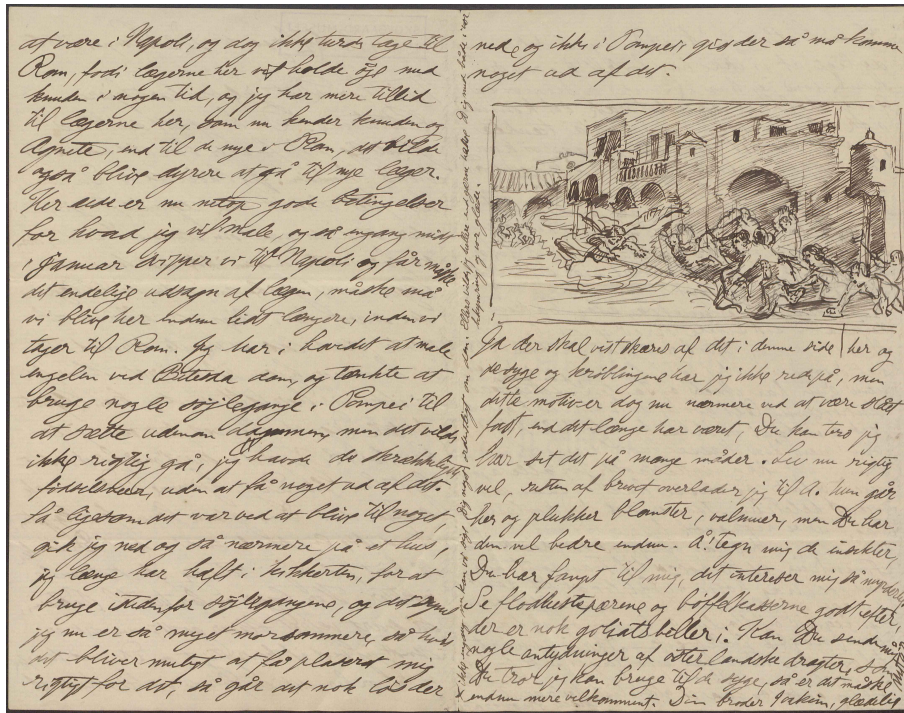 at være i Napoli, og dog ikke turde tage til
Rom, fordi lægerne her vil holde øje med
hunden i nogen tid, og jeg har mere tillid
til lægerne her, som nu kender hunden og
Agnete, end til de nye i Rom, det vilde
også blive dyrere at gå til nye læger.
Her nede er nu netop gode betingelser
for hvad jeg vil male, og så engang midt
i Januar vipper vi til Napoli og får måske
det endelige udsagn af lægen, måske må
vi blive her endnu lidt længere, inden vi
tager til Rom. Jeg har i hovedet at male
engelen ved Betesda dam, og tænkte at
bruge nogle søjlegange i Pompei til
at sætte udenom dammen, men det vilde
ikke rigtig gå, jeg havde de skrækkeligste
fødselsveer, uden at få noget ud af det.
Så ligesom det var ved at blive til noget,
gik jeg ned og så nærmere på et hus,
jeg længe har haft i kikkerten, for at
bruge istedenfor søjlegangene, og det synes
jeg nu er så meget morsommere, så hvis
det bliver muligt at få placeret mig
rigtigt for det, så går det nok løs der
nede og ikke i Pompei, gid der så må komme
noget ud af det.
Ja der skal vist skæres af det i denne side her og
de syge og krøblingene har jeg ikke rede på, men
dette motiv er dog nu nærmere ved at være slået
fast, end det længe har været, Du kan tro jeg
har set det på mange måder. Lev nu rigtig
vel, resten af brevet overlader jeg til A. hun går
her og plukker blomster, valmuer, men Du har
den vel bedre endnu. Å! tegn mig de insekter,
Du har fanget til mig, det interesser mig så
Se flodhestepærerne og bøffelkasserne godt efter,
der er nok goliatsbiller i. Kan Du sende mig
nogle antydninger af østerlandske dragter, som
Du tror jeg kan bruge til de syge, så er det måske
endnu mere velkomment. Din broder Joakim, glædelig